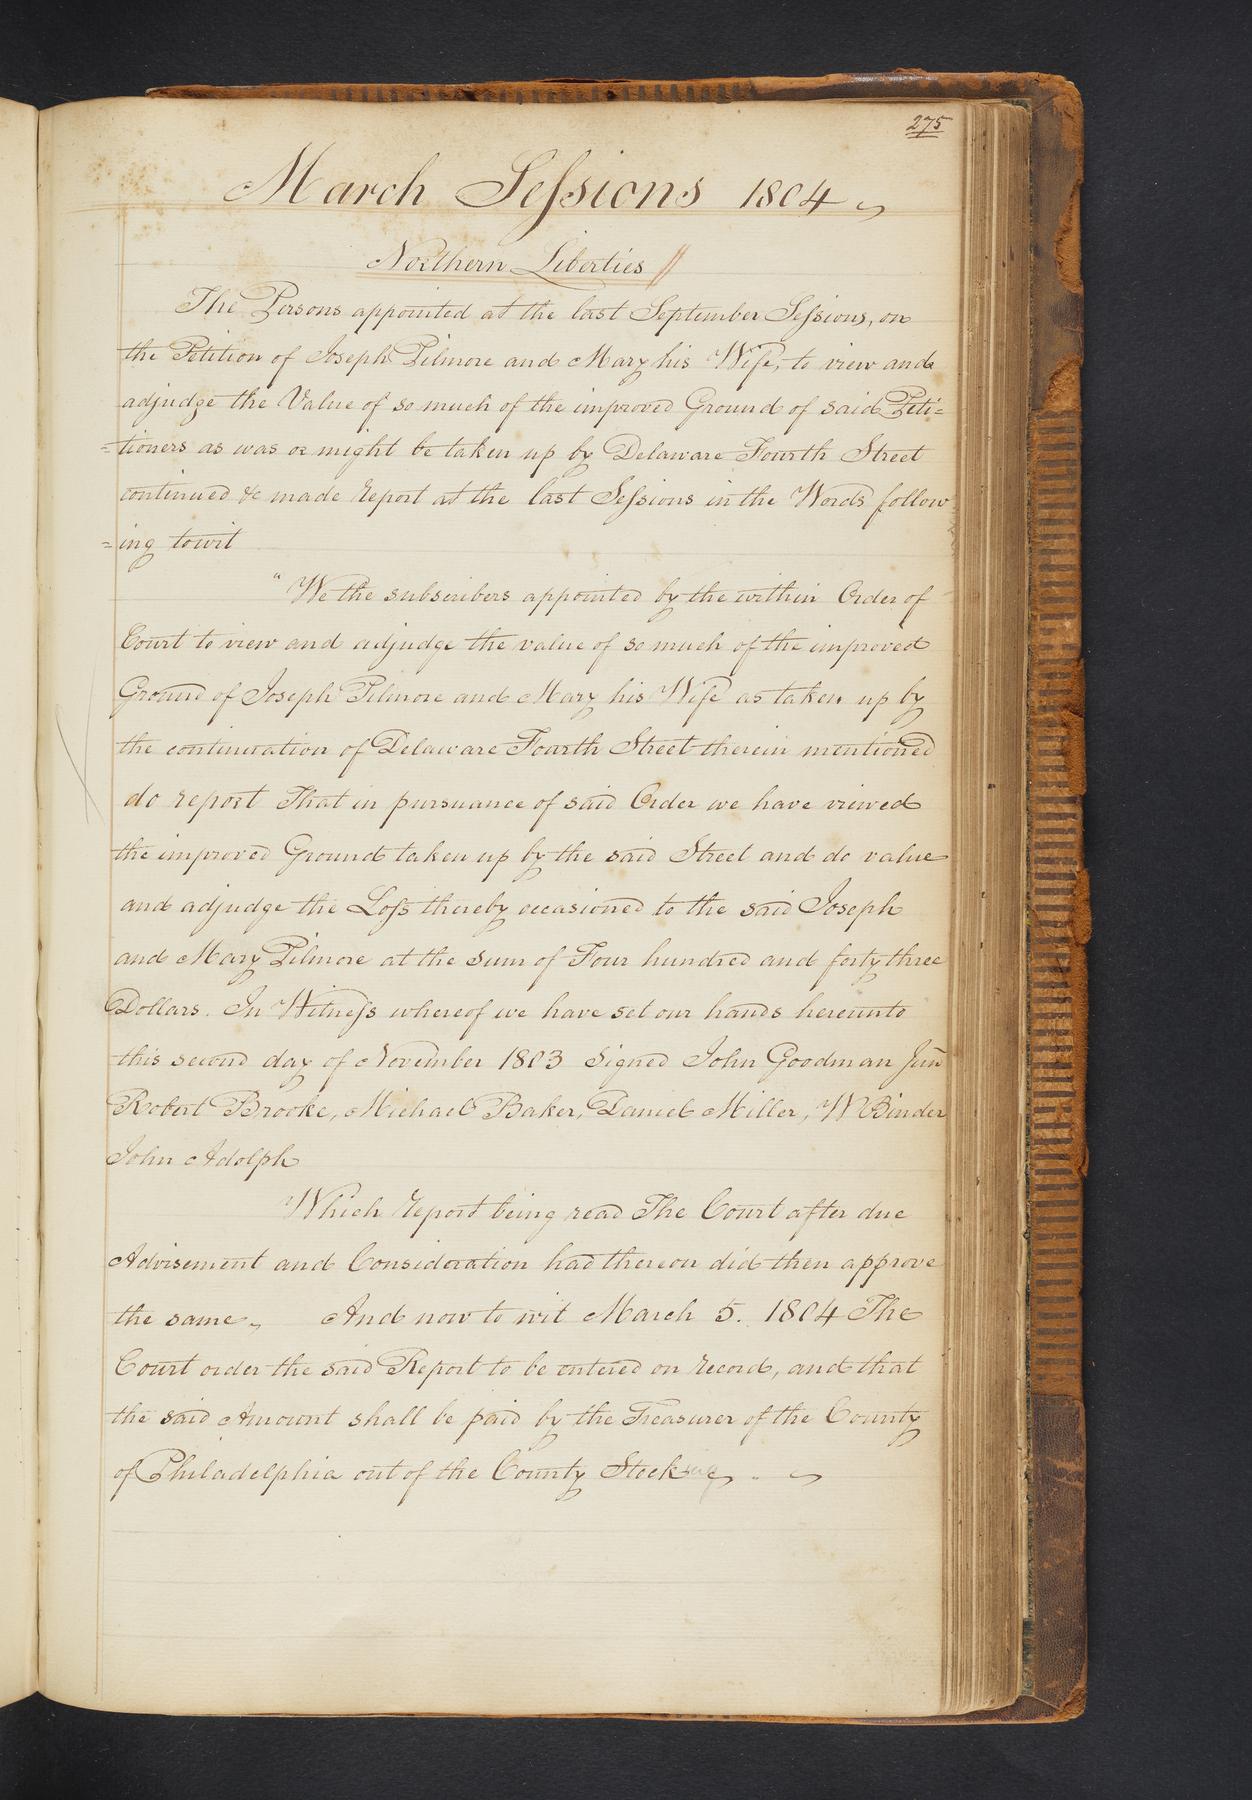 275
March Seſsions 1804
Northern Liberties //
The Persons appointed at the last September Seſsions, on
the Petition of Joseph Pilmore and Mary his Wife, to view and
adjudge the Value of so much of the improved Ground of said Peti=
=tioners as was or might be taken up by Delaware Fourth Street
continued &c made Report at the last Seſsions in the Words follow
=ing towit
"We the subscribers appointed by the within Order of
Court to view and adjudge the value of so much of the improved
Ground of Joseph Pilmore and Mary his Wife as taken up by
the continuation of Delaware Fourth Street therein mentioned
do report That in pursuance of said Order we have viewed
the improved Ground taken up by the said Street and do value
and adjudge the Loſs thereby occasioned to the said Joseph
and Mary Pilmore at the sum of Four hundred and forty three
Dollars. In Witneſs whereof we have set our hands hereunto
this second day of November 1803 Signed John Goodman Junr
Robert Brooke, Michael Baker, Daniel Miller, W Binder
John Adolph
Which Report being read The Court after due
Advisement and Consideration had thereon did then approve
the same. And now to wit March 5. 1804 The
Court order the said Report to be entered on record, and that
the said Amount shall be paid by the Treasurer of the County
of Philadelphia out of the County Stock